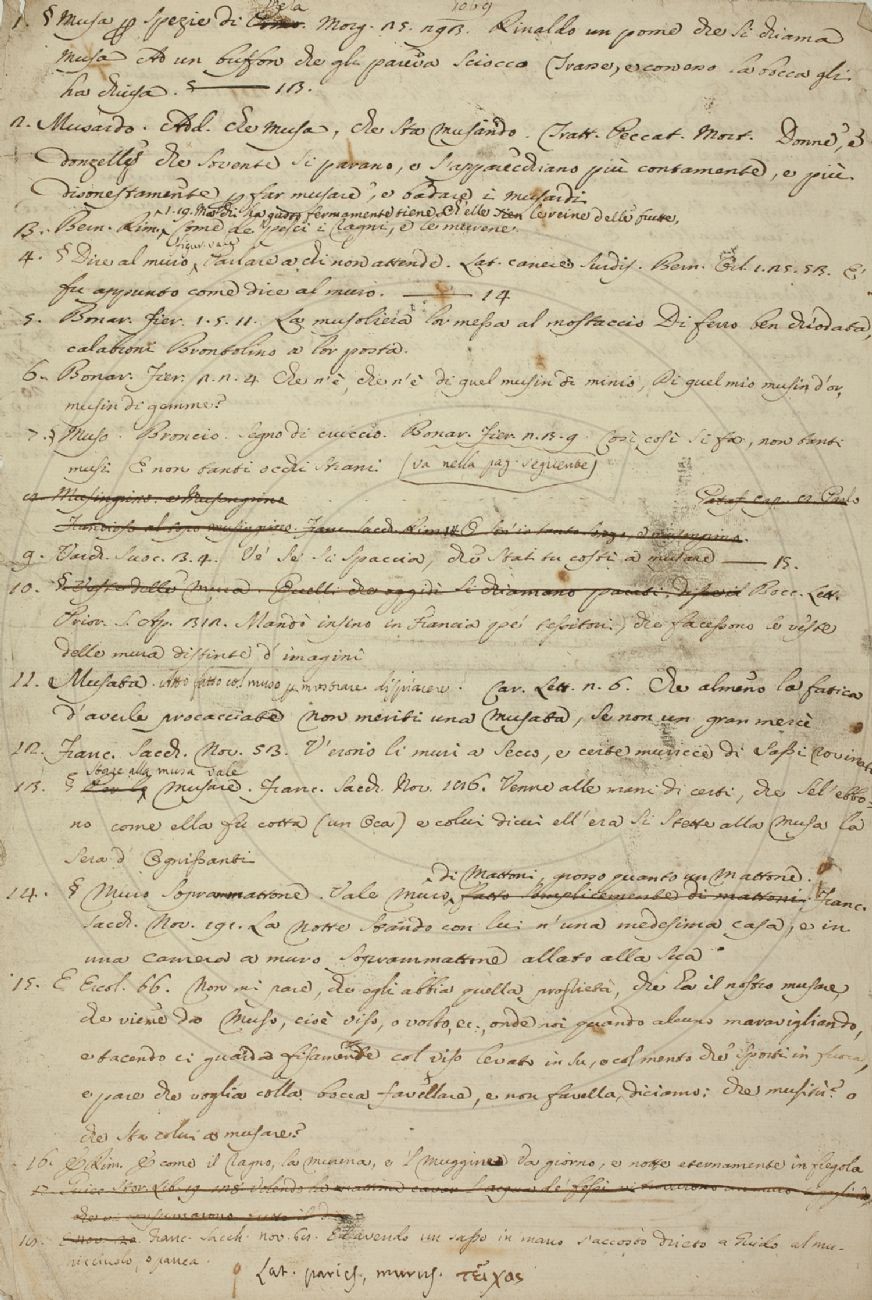 1069
1. § Musa per spezie di Mela. Morg. 25. 293. Rinaldo un pome che si chiama
Musa Ad un buffon che gli pareva sciocco Trasse, e con esso la bocca gli
ha chiusa. § ——— 13.
2. Musardo. Add. che musa, che sta musando. Tratt. Peccat. Mort. Donne, e
donzelle che sovente si parano, e s'apparecchiano più contamente, e più
disonestamente per far musare, e badare i musardi
1. 19. Ma chi ha gusto fermamente tiene, Ch'elle sien le reine delle frutte,
3. Bern. Rim. Come de' pesci i ragni, e le murene.
figur. vale
4. § Dire al muro, Parlare a chi non attende. Lat. canere surdis. Bern. Orl. 1. 25. 53. E'
fu appunto come dire al muro. ——— 14
5. Bonar. Fier. 1. 5. 11. La musoliera lor messa al mostaccio Di ferro ben chiodata,
calabroni Brontolino a lor posta.
6. Bonar. Fier. 2. 2. 4. Che n'è, che n'è di quel musin di minio, Di quel mio musin d'or,
musin di gemme?
7. § Muso. Broncio. segno di cruccio. Bonar. Fier. 2. 3. 9. Così così si fa, non tanti
musi E non tanti occhi strani (va nella pag. seguente)
8. Musingino, e Musongino Pataf. cap. 8. Paolo
Francioso al sero musingino. Franc. Sacch. Rim.
9. Varch. Suoc. 3. 4. Ve' se si spaccia, che stai tu costì a musare ——— 15.
10. § Veste delle mura. Quelli che oggidì si chiamano parati. Bocc. Lett.
Prior. S. Ap. 312. Mandò insino in Francia pe' tessitori, che facessono le veste
delle mura distinte d'imagini
11. Musata. Atto fatto col muso per mostrare dispiacere. Car. Lett. 2. 6. Che almeno la fatica
d'averle procacciate non meriti una musata, se non un gran mercè
12. Franc. Sacch. Nov. 53. V'erono li muri a secco, e certe muricce di sassi rovinati
stare alla musa vale
13. § Musare. Franc. Sacch. Nov. 186. Venne alle mani di certi, che sel'ebbo-
no come ella fu cotta (un Oca) e colui di cui ell'era si stette alla musa la
sera d'Ognissanti
di Mattoni, grosso quanto un Mattone.
14. § Muro soprammattone. Vale Muro, fatto semplicemente di mattoni. Franc.
Sacch. Nov. 191. La notte stando con lui n'una medesima casa, e in
una camera a muro soprammattone allato alla sua
15. E Ercol. 66. Non mi pare, che egli abbia quella proprietà, che ha il nostro musare,
che viene da Muso, cioè viso, o volto, ec., onde noi quando alcuno maravigliando,
e tacendo ci guarda fisamente col viso levato in su, o col mento che sporti in fuora,
e pare che voglia colla bocca favellare, e non favella, diciamo: che musitu? o
che sta colui a musare?
16. E Rim. E come il ragno, la murena, e 'l muggine Da giorno, e notte eternamente in fregola
18. Franc. Sacch. nov. 61. Ed avendo un sasso in mano s'accostò drieto a Guido al mu-
ricciuolo, o panca.
Lat. paries, murus. τεῖχος